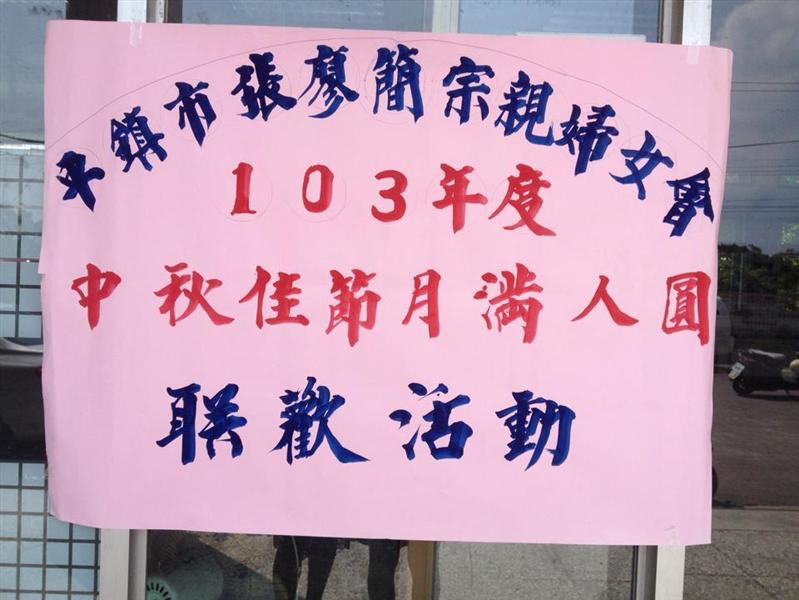 平鎮市張廖簡宗親婦女會
103年度
中秋佳節月滿人圓
联歡活動